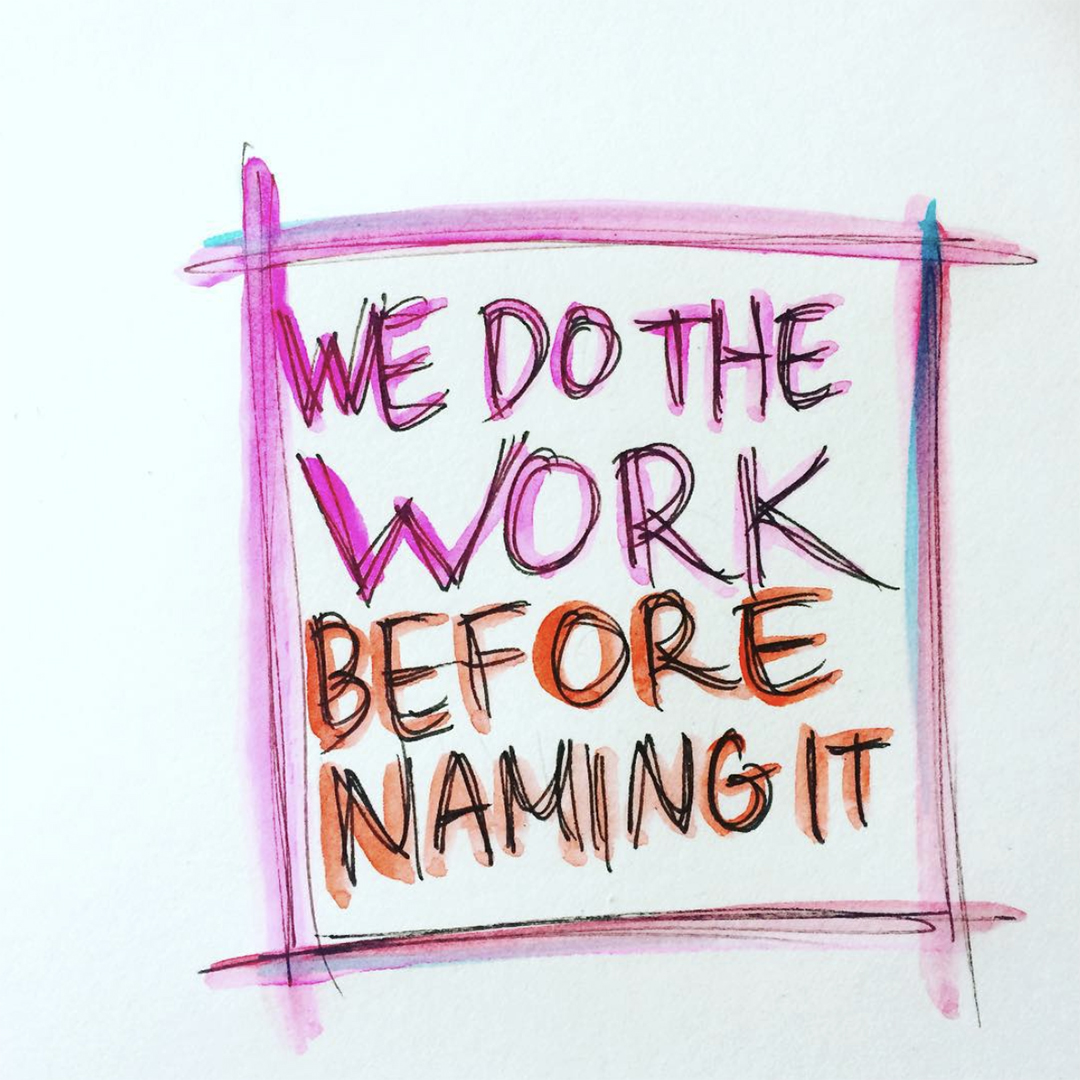 WE DO THE
WORK
BEFORE
NAMING IT